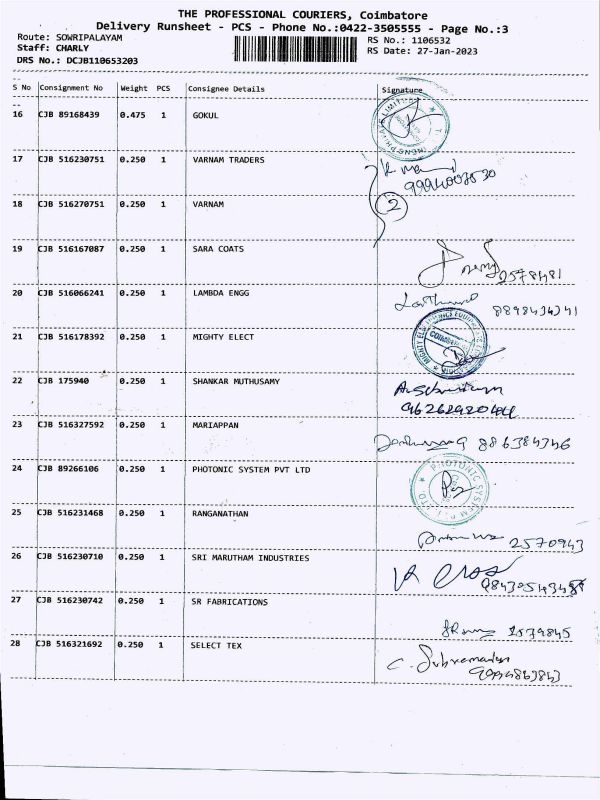 THE PROFESSIONAL COURIERS, Coimbatore
Delivery Runsheet - PCS - Phone No.:0422-3505555 - Page No.:3
Route: SOWRIPALAYAM
RS No.: 1106532
Staff: CHARLY
RS Date: 27-Jan-2023
DRS No.: DCJB110653203
S No Consignment No Weight PCS Consignee Details Signature
16 CJB 89168439 0.475 1 GOKUL
17 CJB 516230751 0.250 1 VARNAM TRADERS
18 CJB 516270751 0.250 1 VARNAM
2
19 CJB 516167087 0.250 1 SARA COATS
2578481
20 CJB 516066241 0.250 1 LAMBDA ENGG
21 CJB 516178392 0.250 1 MIGHTY ELECT
22 CJB 175940 0.250 1 SHANKAR MUTHUSAMY
23 CJB 516327592 0.250 1 MARIAPPAN
24 CJB 89266106 0.250 1 PHOTONIC SYSTEM PVT LTD
PHOTONIC SYSTEM
25 CJB 516231468 0.250 1 RANGANATHAN
2570943
26 CJB 516230710 0.250 1 SRI MARUTHAM INDUSTRIES
27 CJB 516230742 0.250 1 SR FABRICATIONS
28 CJB 516321692 0.250 1 SELECT TEX